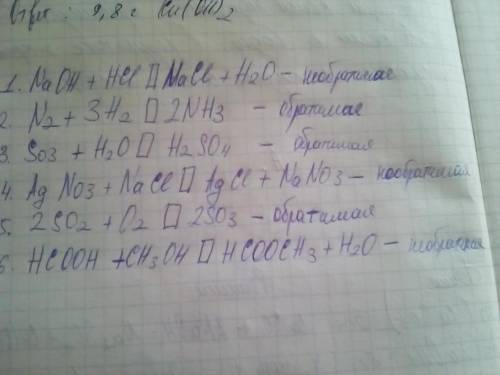 Ответ: 9,8 г Cu(OH)2
1. NaOH + HCl □ NaCl + H2O – необратимая
2. N2 + 3H2 □ 2NH3 – обратимая
3. SO3 + H2O □ H2SO4 – обратимая
4. AgNO3 + NaCl □ AgCl + NaNO3 – необратимая
5. 2SO2 + O2 □ 2SO3 – обратимая
6. HCOOH + CH3OH □ HCOOCH3 + H2O –